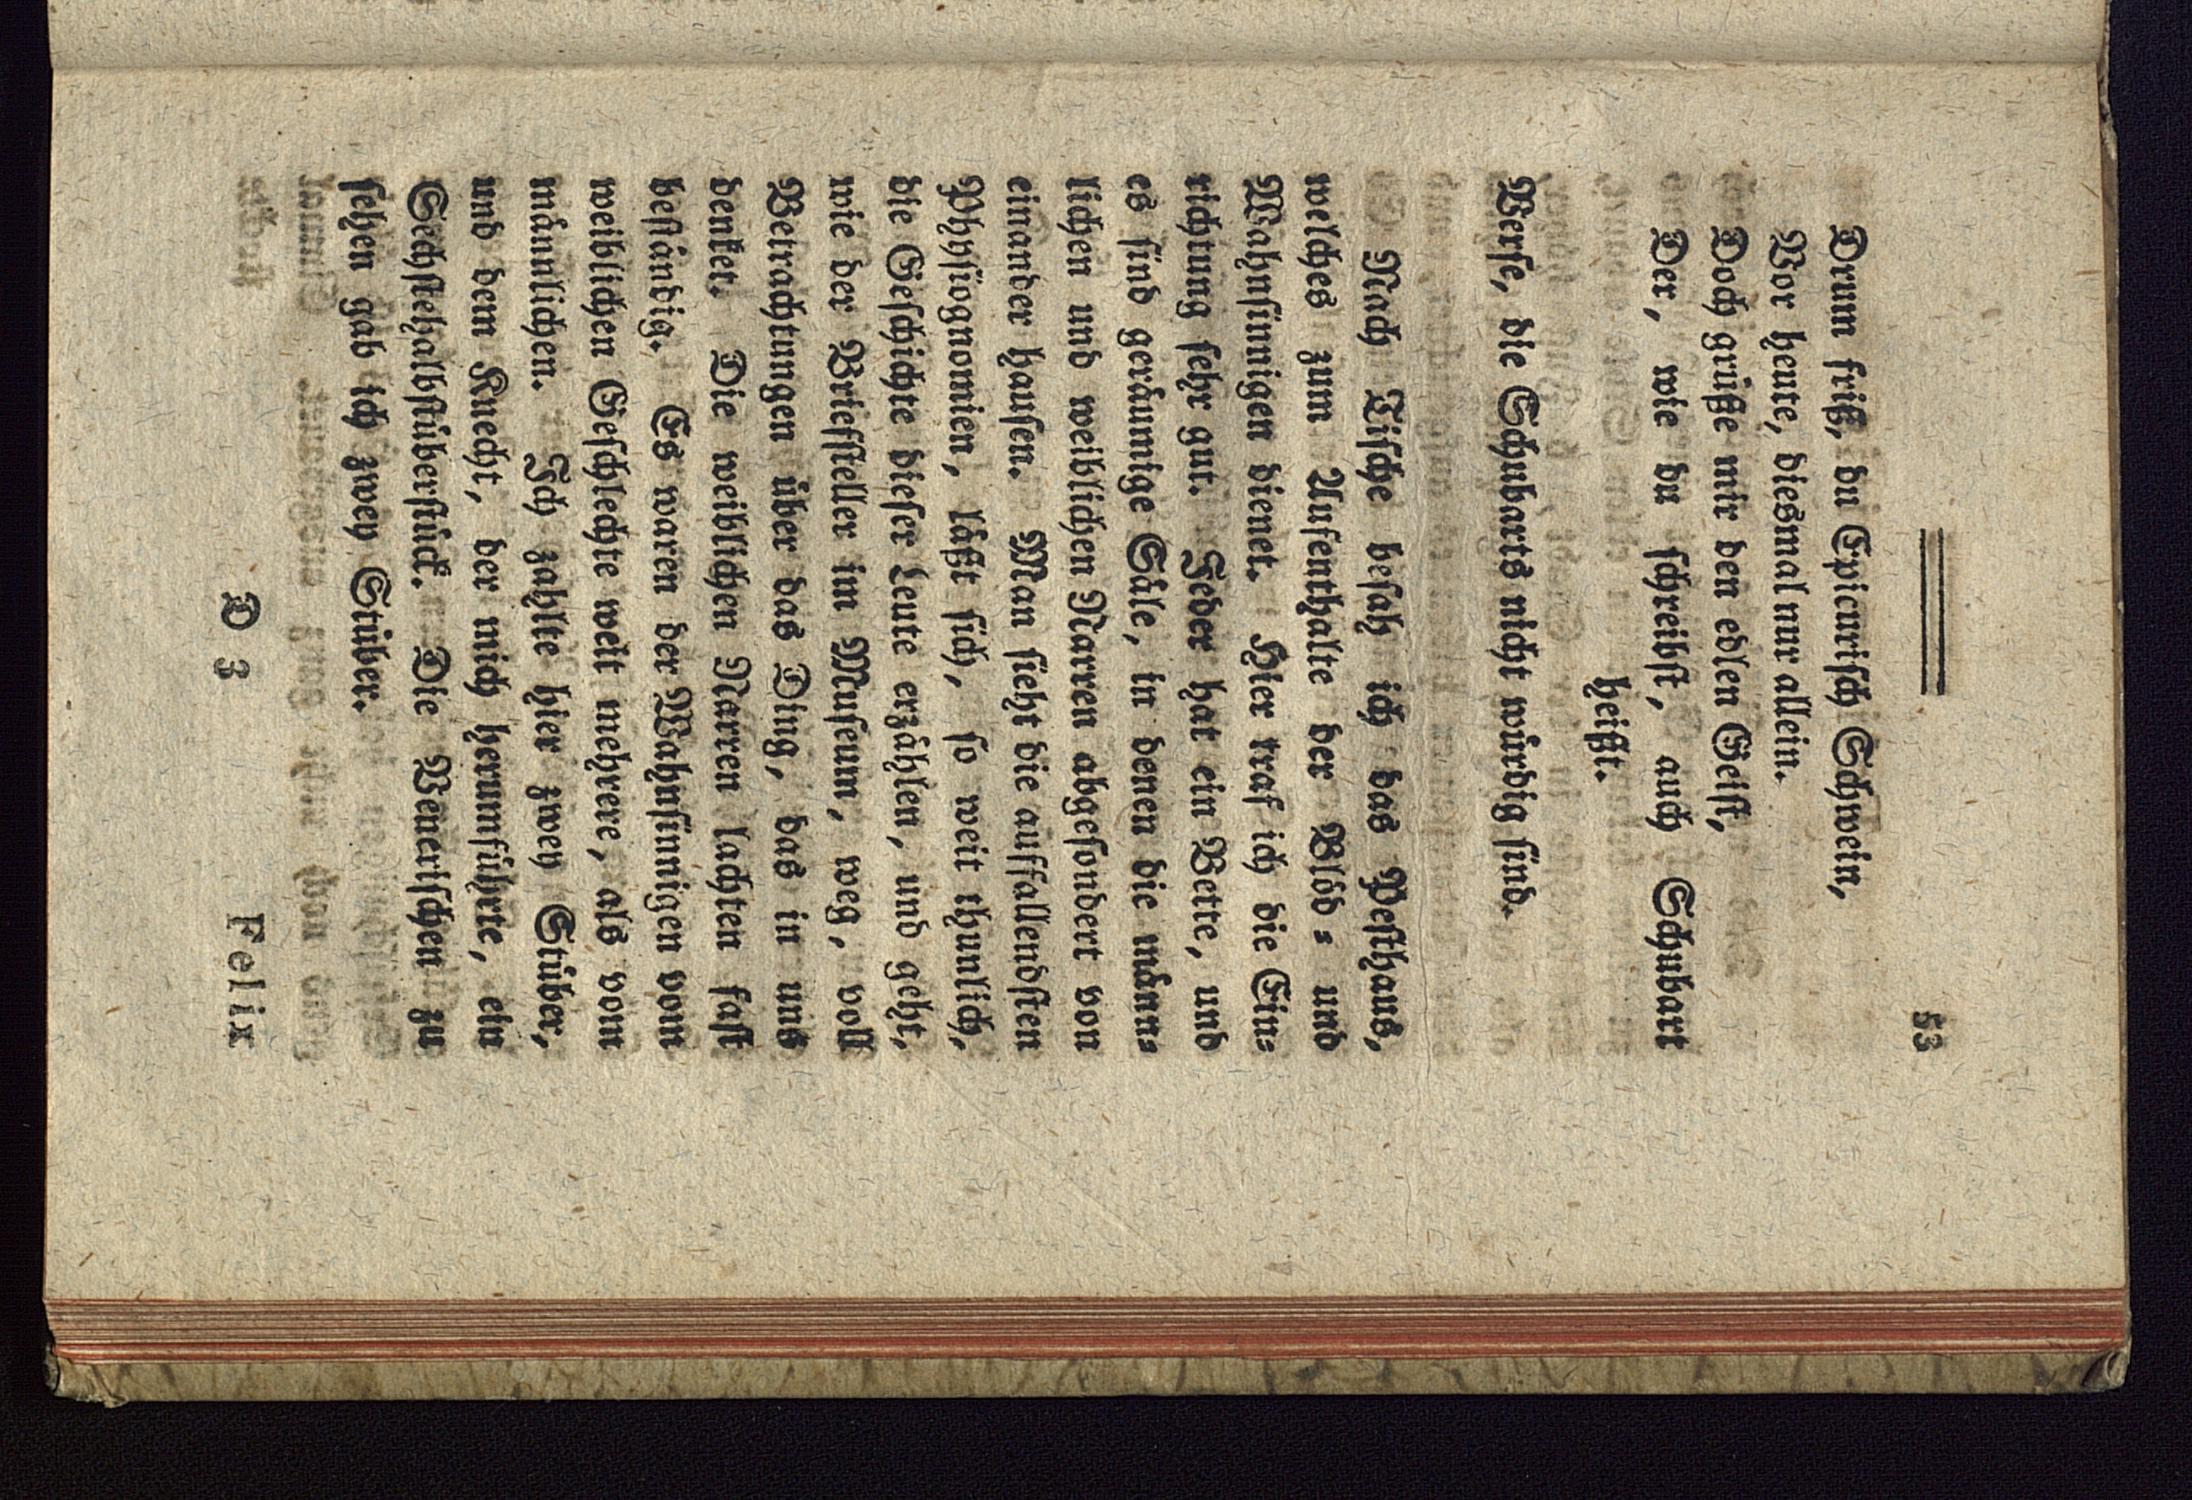 53
Drum friß, du Epicurisch Schwein,
Vor heute, diesmal nur allein.
Doch grüße mir den edlen Geist,
Der, wie du schreibst, auch Schubart
heißt.
Verse, die Schubarts nicht würdig sind.
Nach Tische besah ich das Pesthaus,
welches zum Aufenthalte der Blöd- und
Wahnsinnigen dienet. Hier traf ich die Ein-
richtung sehr gut. Jeder hat ein Bette, und
es sind geräumige Säle, in denen die männ-
lichen und weiblichen Narren abgesondert von
einander hausen. Man sieht die auffallendsten
Physiognomien, läßt sich, so weit thunlich,
die Geschichte dieser Leute erzählen, und geht,
wie der Briefsteller im Museum, weg, voll
Betrachtungen über das Ding, das in uns
denket. Die weiblichen Narren lachten fast
beständig. Es waren der Wahnsinnigen vom
weiblichen Geschlechte weit mehrere, als vom
männlichen. Ich zahlte hier zwey Stüber,
und dem Knecht, der mich herumführte, ein
Sechstehalbstüberstück. Die Venerischen zu
sehen gab ich zwey Stüber.
D 3
Felix